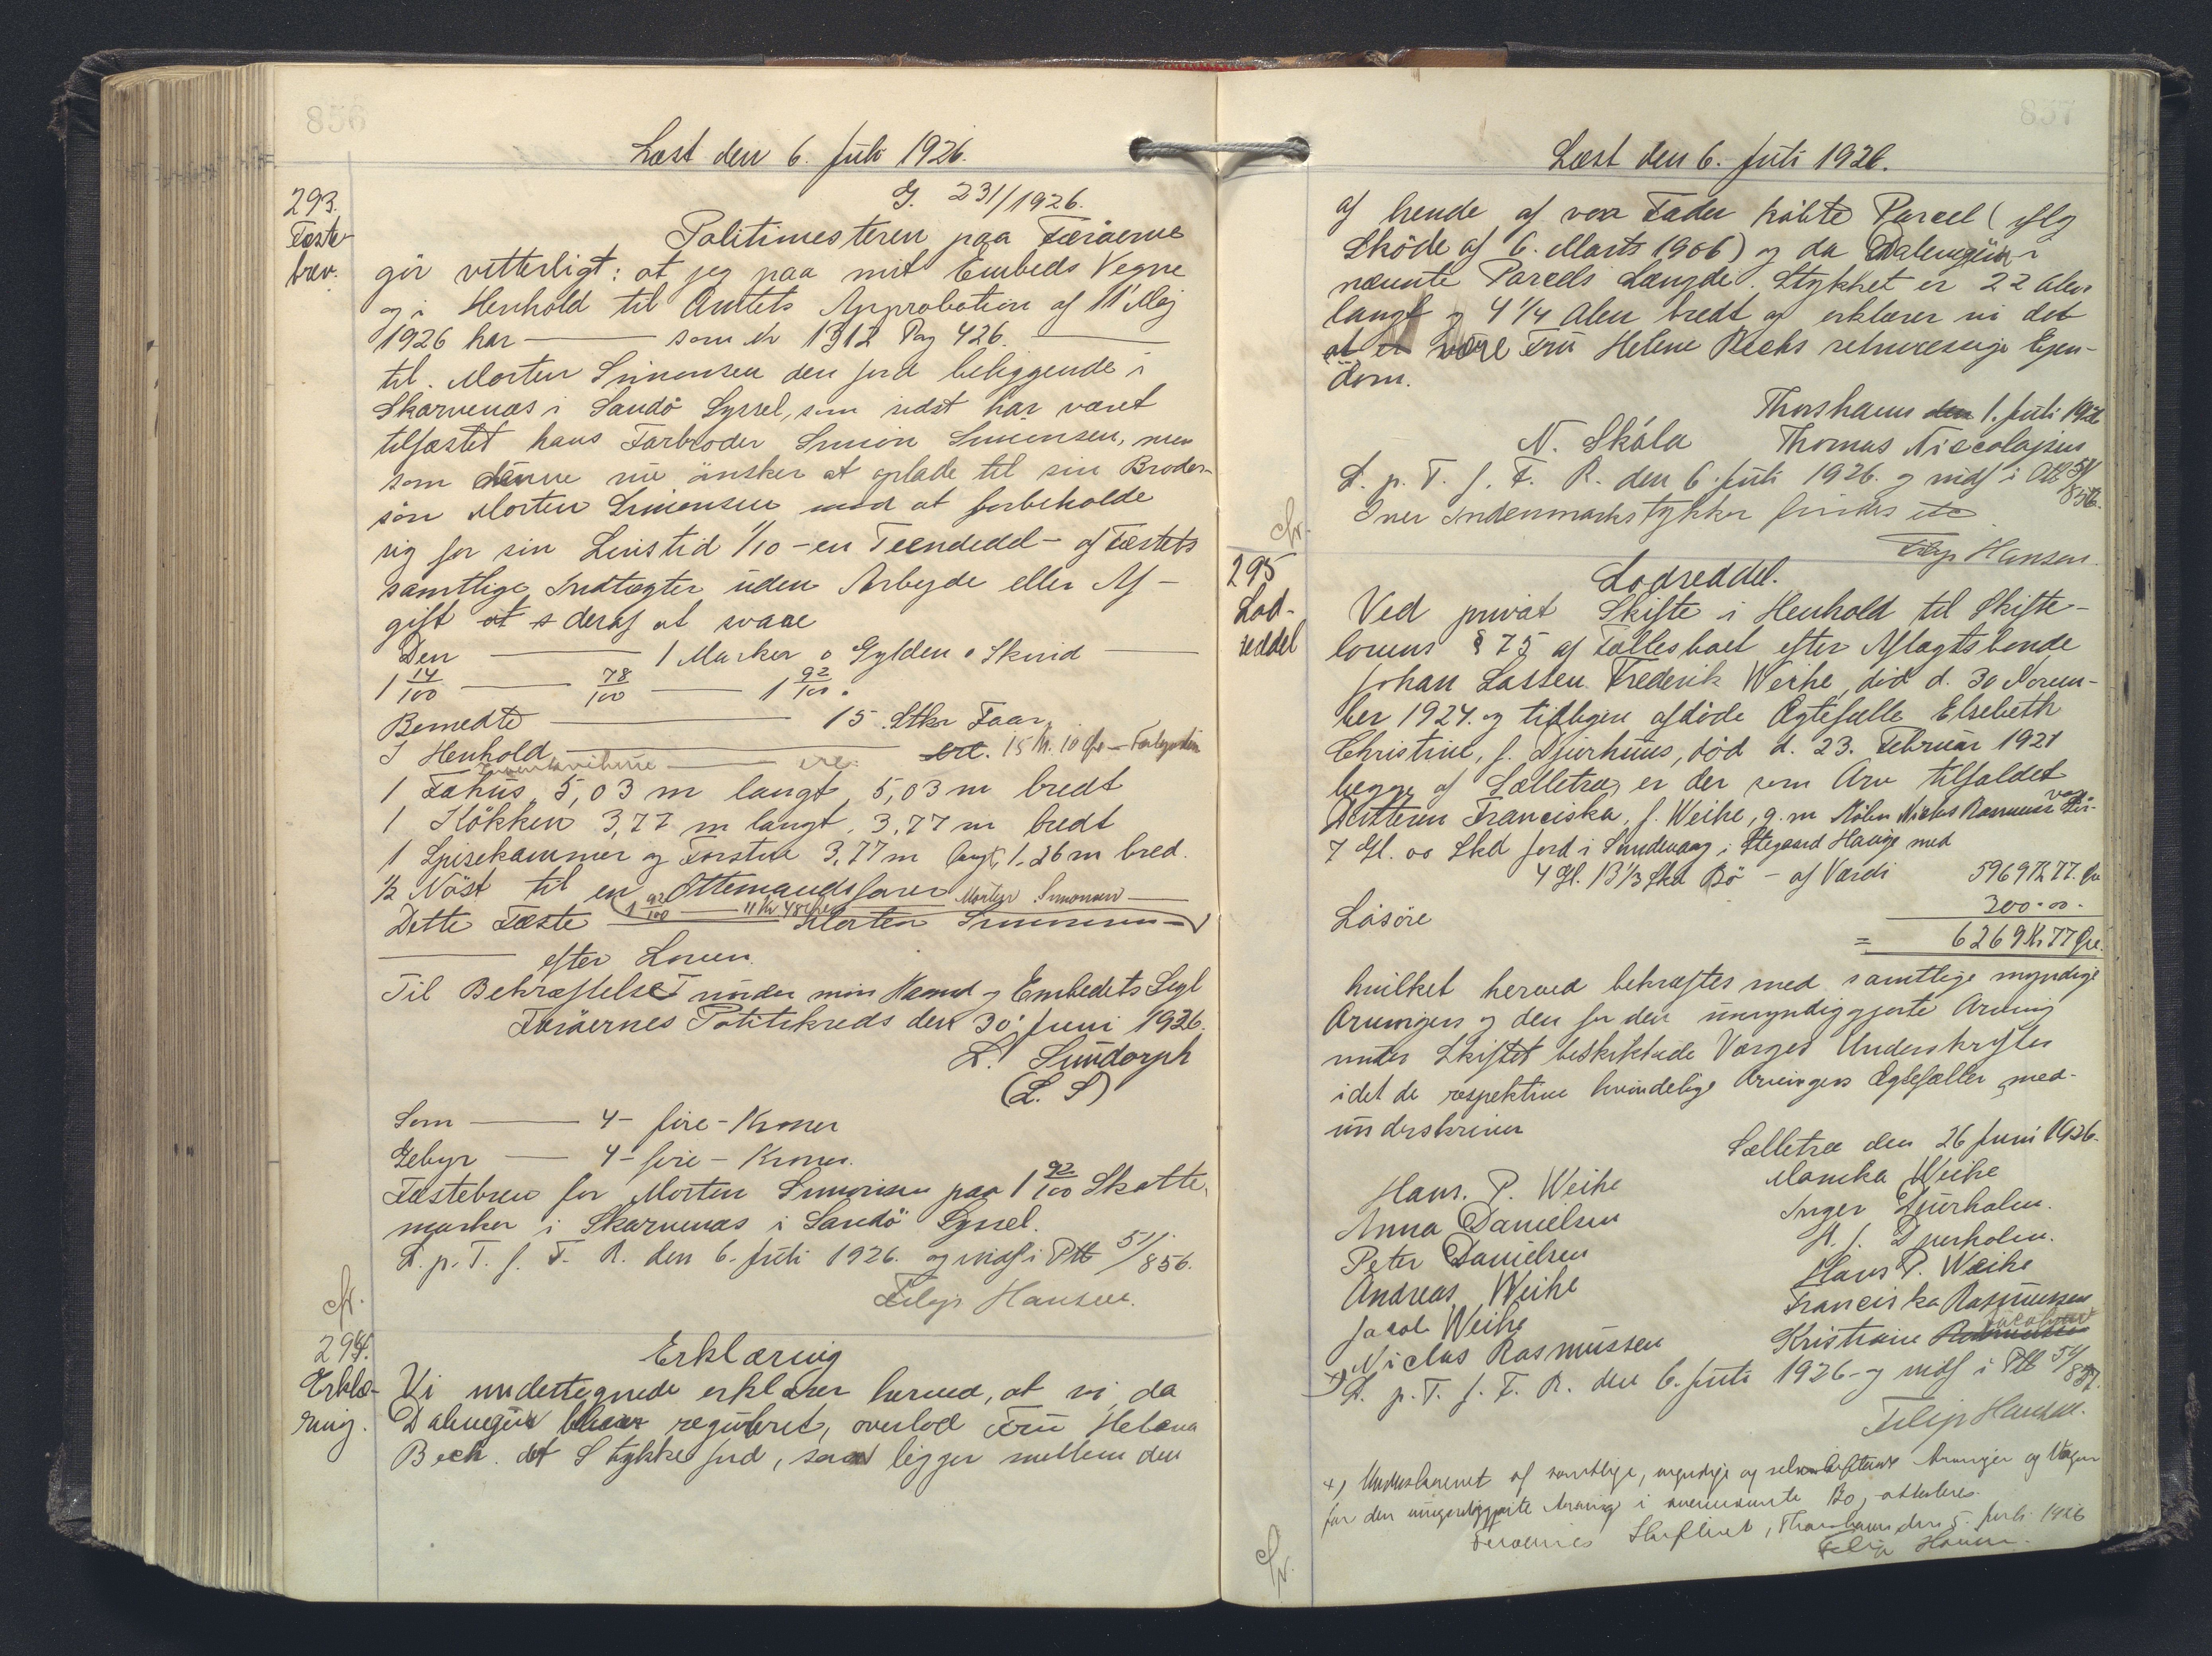 856
Læst den 6. Juli 1926.
G. 231/1926.
293.
Fæste-
brev.
Politimesteren paa Færøerne
gör vitterligt: at jeg paa mit Embeds Vegne
og i Henhold til Amtets Approbation af 11' Maj
1926 har — som Nr 1312 Pag 426. —
til Morten Simonsen den Jord beliggende i
Skarvenæs i Sandö Syssel, som sidst har været
tilfæstet hans Farbroder Simon Simonsen, men
som denne nu ønsker at oplade til sin Broder-
sön Morten Simonsen mod at forbeholde
sig for sin Livstid 1/10 - en Teendedel - af Fæstets
samtlige Indtægter uden Arbejde eller Af-
gift at s deraf at svare
Den — 1 Marker o Gylden o Skind —
1 14/100 — 78/100 — 1 92/100.
Bemedte — 15 Stkr Faar
I Henhold — ere. 15 Kr. 10 Øre -
— ere.
1 Fahus 5,03 m langt 5,03 m bredt
1 Kökken 3,77 m langt, 3,77 m bredt
1 Spisekammer og Forstue 3,77 m langt, 1.26 m bred.
1/2 Nöst til en Ottemandsfarer Morten Simonsen —
1 92/100 — 11 Kr 48 Øre
Dette Fæste — Morten Simonsen —
— efter Loven.
Til Bekræftelse T under min Haand og Embedets Segl
Færøernes Politikreds den 30' Juni 1926.
L. Sundorph
(L. S)
Som — 4 - fire - Kroner
Gebyr — 4 - fire - Kroner.
Fæstebrev for Morten Simonsen paa 1 92/100 Skatte-
marker i Skarvenæs i Sandö Syssel.
L. p. T. f. F. R. den 6. Juli 1926. og indf i Ptb 51/856.
Filip Hansen.
294.
Erklæ-
ring.
Erklæring
Vi undertegnede erklærer herved, at vi, da
Dalengün blev reguleret, overlod Fru Helena
Bech det Stykke Jord, som ligger mellem den
837
Læst den 6. Juli 1926.
af hende af vor Fader købte Parcel (iflg
Sköde af 6. Marts 1906) og da Dalengün i
nævnte Parcels Længde. Stykket er 22 Alen
langt og 4 1/4 Alen bredt og erklærer vi det
at er være Fru Helene Bechs retmæssige Ejen-
dom.
Thorshavn den 1. Juli 1926
N. Skála Thomas Niccolajsen
L. p. T. f. F. R. den 6. Juli 1926. og indf i Ptb 51/856.
Indenmarksstykker findes
Filip Hansen.
295
Lod-
seddel
Lodseddel.
Ved privat Skifte i Henhold til Skifte-
lovens § 75 af Fællesboet efter Aflagtsbonde
Johan Lassen Frederik Weihe, död d. 30 Novem-
ber 1924. og tidligere afdöde Ægtefælle Elsebeth
Christine, f. Djurhuus, död d. 23. Februar 1921
begge af Sælletræ, er der som Arv tilfaldet
Datteren Franciska, f. Weihe, g. m Niclas Rasmussen
7 Gl. oo Skd Jord i Sundevaag i Stegaard Hauge med
4 Gl. 13 1/3 Skd Bö - af Værdi 5969 Kr 77. Øre
Lösöre 300.00.
= 6269 Kr 77 Øre.
hvilket herved bekræftes med samtlige myndige
Arvingers og den for den umyndiggjorte Arving
under Skiftet beskikkede Værges Underskrifter
idet de respektive kvindelige Arvingers Ægtefæller med-
underskriver
Sælletræ den 26 Juni 1926.
Hans. P. Weihe Monika Weihe
Anna Danielsen Inger Djurholm.
Peter Danielsen H. J. Djurholm.
Andreas Weihe Hans P. Weihe
Jacob Weihe Franciska Rasmussen
Niclas Rasmussen Kristiane Rasmussen Jacobsen
+) L. p. T. f. F. R. den 6. Juli 1926 - og indf i Ptb 51/857.
Filip Hansen.
+) Underskrevet af samtlige, myndige og selvskiftende Arvinger og Værgen
for den umyndiggjorte Arving i ovennævnte Bo, attesteres.
Færøernes Skifteret, Thorshavn den 5. Juli 1926
Filip Hansen.